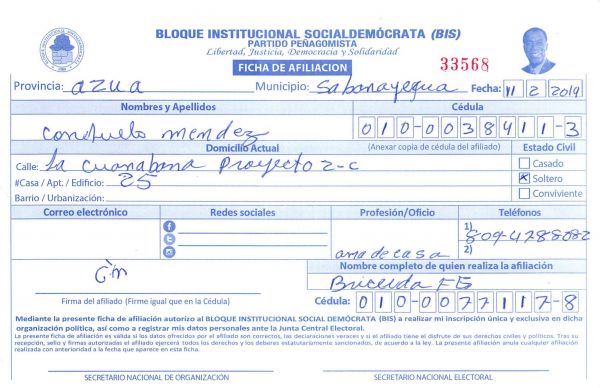 BLOQUE INSTITUCIONAL SOCIALDEMÓCRATA (BIS)
PARTIDO PEÑAGOMISTA
Libertad, Justicia, Democracia y Solidaridad
FICHA DE AFILIACION
33568
Provincia: azua Municipio: Sabanayegua Fecha: 11 2 2019
Nombres y Apellidos Cédula
Consuelo mendez 010-0038411-3
Domicilio Actual (Anexar copia de cédula del afiliado) Estado Civil
Calle: La Guanabana Proyecto 2-c
Casado
#Casa / Apt. / Edificio: 25
Soltero
Barrio / Urbanización:
Conviviente
Correo electrónico Redes sociales Profesión/Oficio Teléfonos
1) 809-4288082
ama de casa 2)
Nombre completo de quien realiza la afiliación
Firma del afiliado (Firme igual que en la Cédula)
Cédula: 010-0077117-8
Mediante la presente ficha de afiliación autorizo al BLOQUE INSTITUCIONAL SOCIAL DEMÓCRATA (BIS) a realizar mi inscripción única y exclusiva en dicha
organización política, así como a registrar mis datos personales ante la Junta Central Electoral.
La presente ficha de afiliación es válida si los datos ofrecidos por el afiliado son correctos, las declaraciones veraces y si el afiliado tiene el disfrute de sus derechos civiles y políticos. Tras su
recepción, sello y firmas autorizadas el afiliado ejercerá todos los derechos y los deberes estatutariamente sancionados, de acuerdo a la ley. La presente afiliación anula cualquier afiliación
realizada con anterioridad a la fecha que aparece en esta ficha.
SECRETARIO NACIONAL DE ORGANIZACIÓN SECRETARIO NACIONAL ELECTORAL